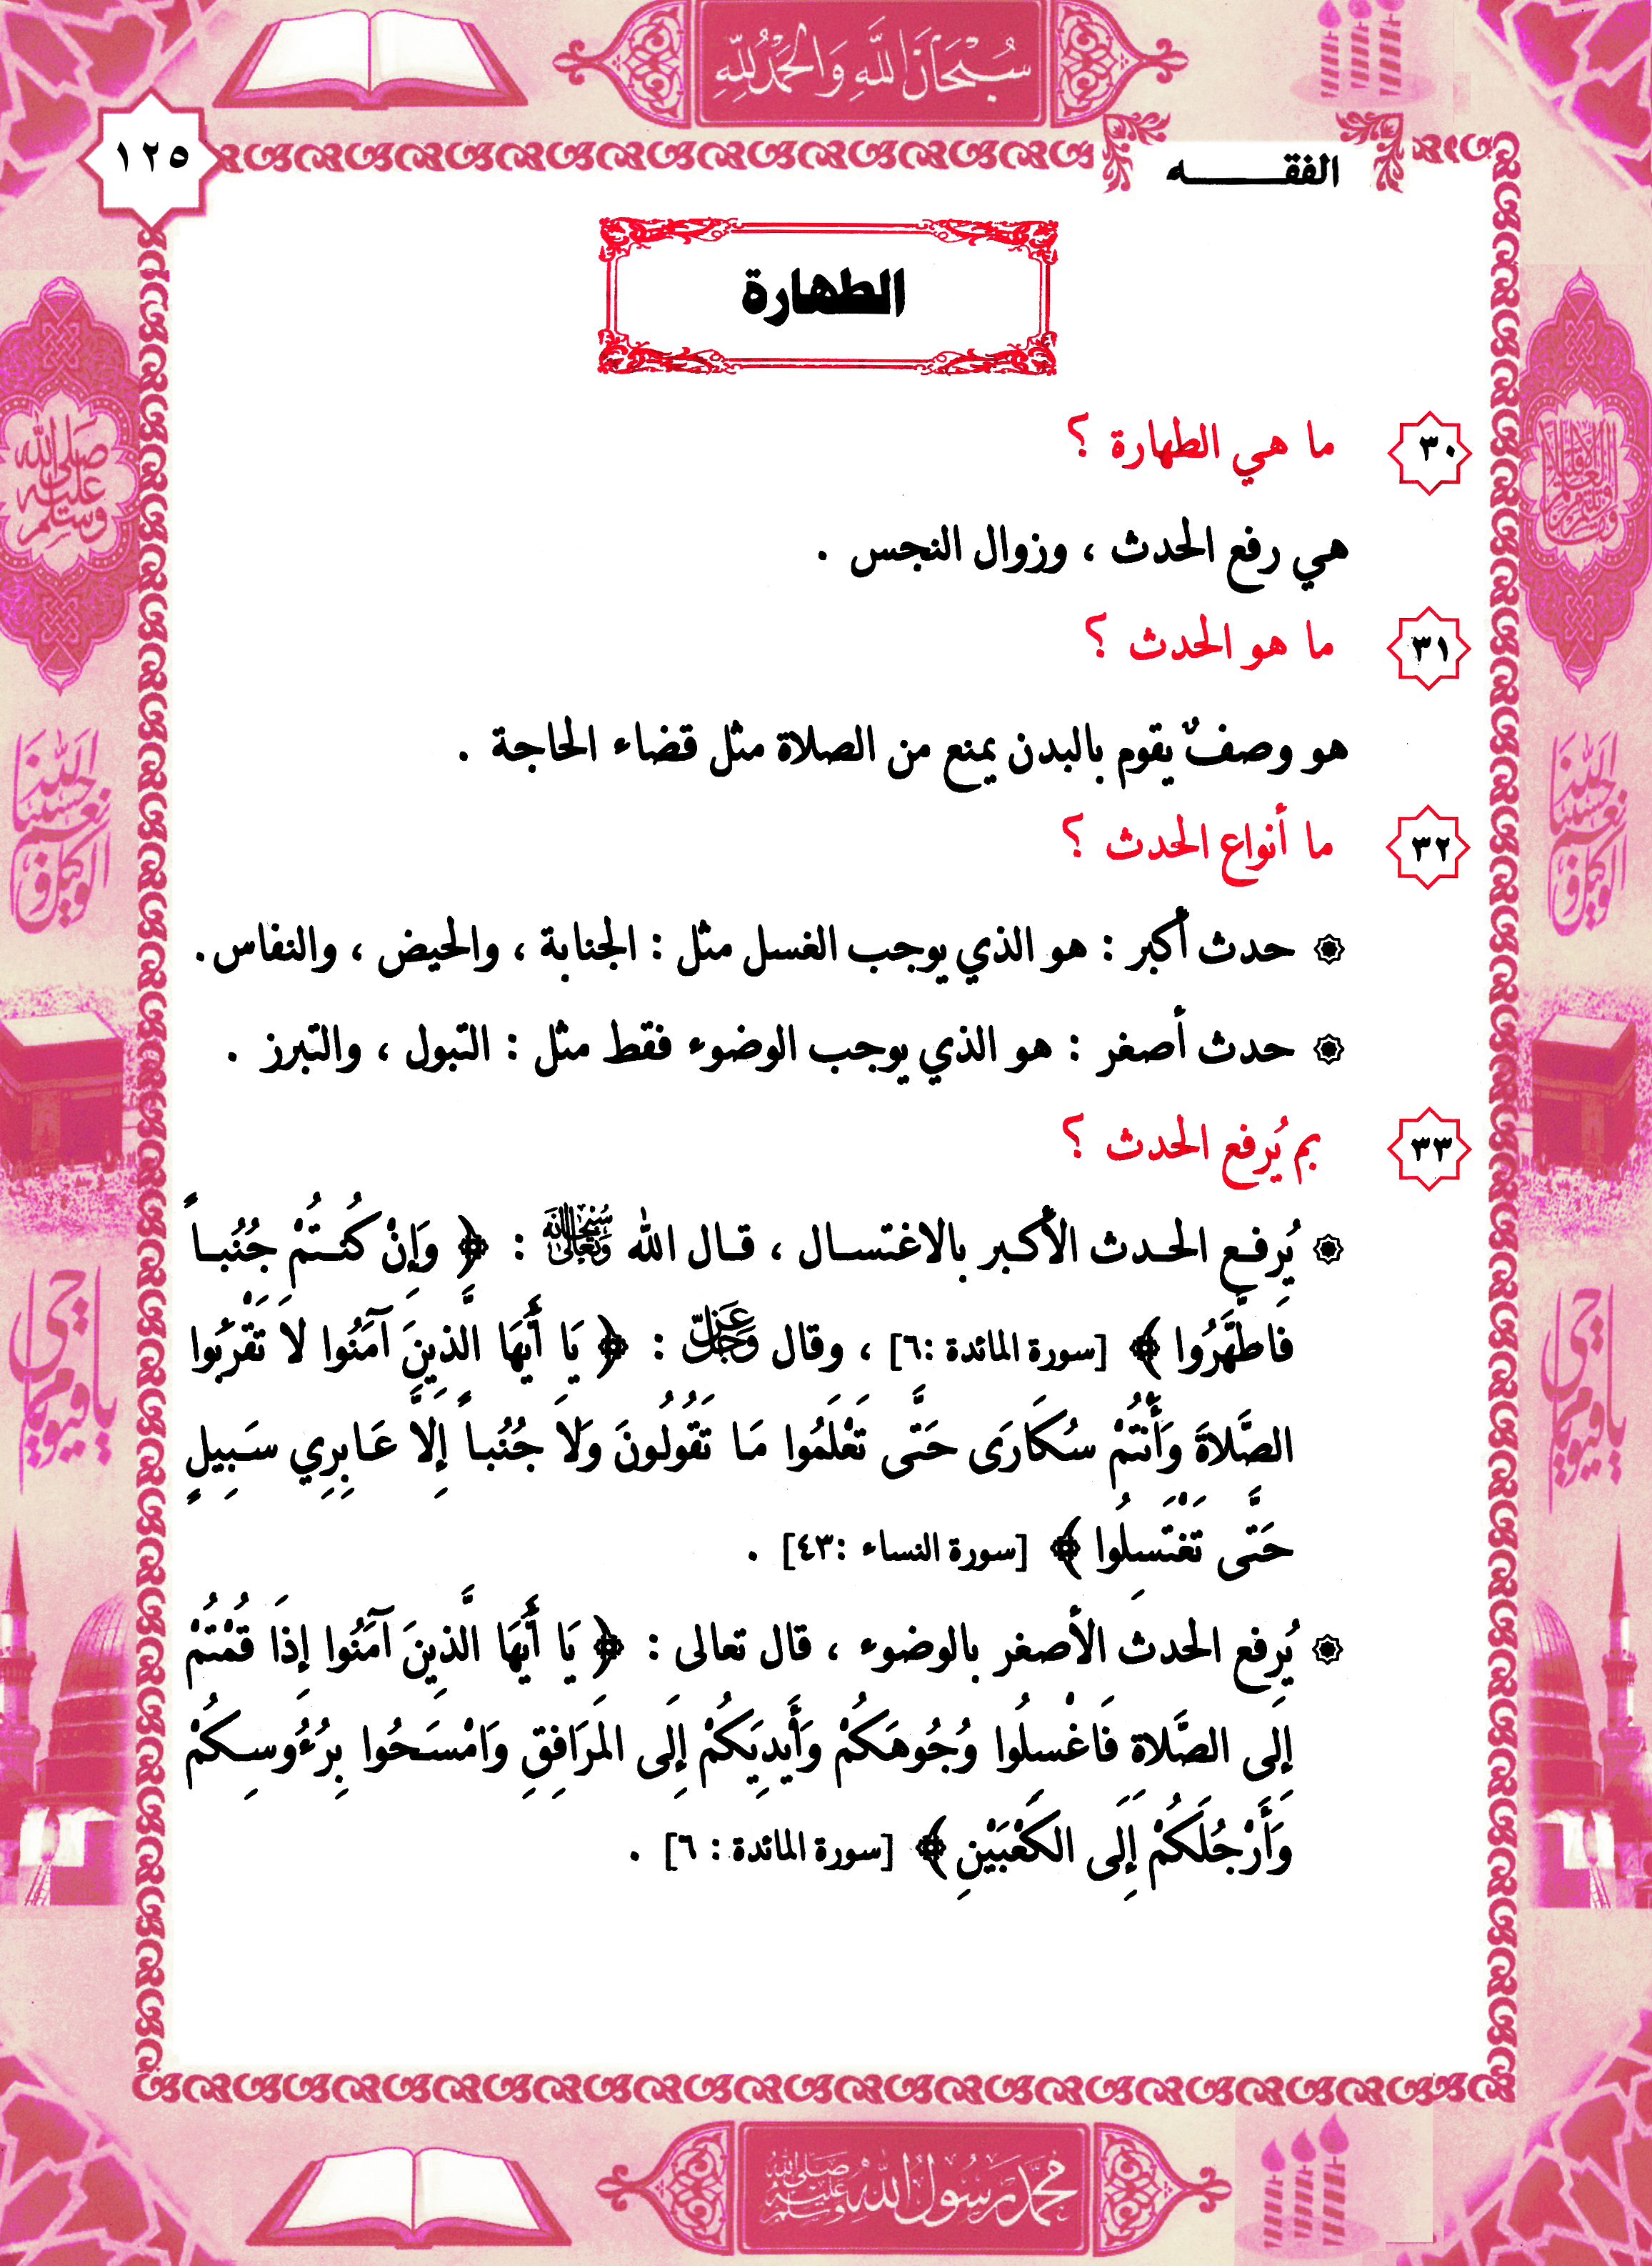 سُبْحَانَ اللَّهِ وَالْحَمْدُ لِلَّهِ
١٢٥
الفقــــــه
الطهارة
٣٠ ما هي الطهارة ؟
هي رفع الحدث ، وزوال النجس .
٣١ ما هو الحدث ؟
هو وصفٌ يقوم بالبدن يمنع من الصلاة مثل قضاء الحاجة .
٣٢ ما أنواع الحدث ؟
۞ حدث أكبر : هو الذي يوجب الغسل مثل : الجنابة ، والحيض ، والنفاس.
۞ حدث أصغر : هو الذي يوجب الوضوء فقط مثل : التبول ، والتبرز .
٣٣ بم يُرفع الحدث ؟
۞ يُرفـع الحـدث الأكـبر بالاغتسـال ، قـال الله سُبْحَانَهُ وَتَعَالَى : ﴿ وَإِنْ كُنـتُمْ جُنُبـاً
فَاطَّهَّرُوا ﴾ [سورة المائدة :٦] ، وقال عَزَّ وَجَلَّ : ﴿ يَا أَيُّهَا الَّذِينَ آمَنُوا لَا تَقْرَبُوا
الصَّلاةَ وَأَنتُمْ سُكَارَى حَتَّى تَعْلَمُوا مَا تَقُولُونَ وَلَا جُنُبـاً إِلاَّ عَـابِرِي سَـبِيلٍ
حَتَّى تَغْتَسِلُوا ﴾ [سورة النساء :٤٣] .
۞ يُرفع الحدث الأصغر بالوضوء ، قال تعالى : ﴿ يَا أَيُّهَا الَّذِينَ آمَنُوا إِذَا قُمْتُمْ
إِلَى الصَّلاةِ فَاغْسِلُوا وُجُوهَكُمْ وَأَيْدِيَكُمْ إِلَى المَرَافِقِ وَامْسَـحُوا بِرُءُوسِـكُمْ
وَأَرْجُلَكُمْ إِلَى الكَعْبَيْنِ ﴾ [سورة المائدة : ٦] .
صلى الله عليه وسلم
حسبنا الله ونعم الوكيل
حسبنا الله ونعم الوكيل
يا حي يا قيوم
يا حي يا قيوم
محمد رسول الله صلى الله عليه وسلم